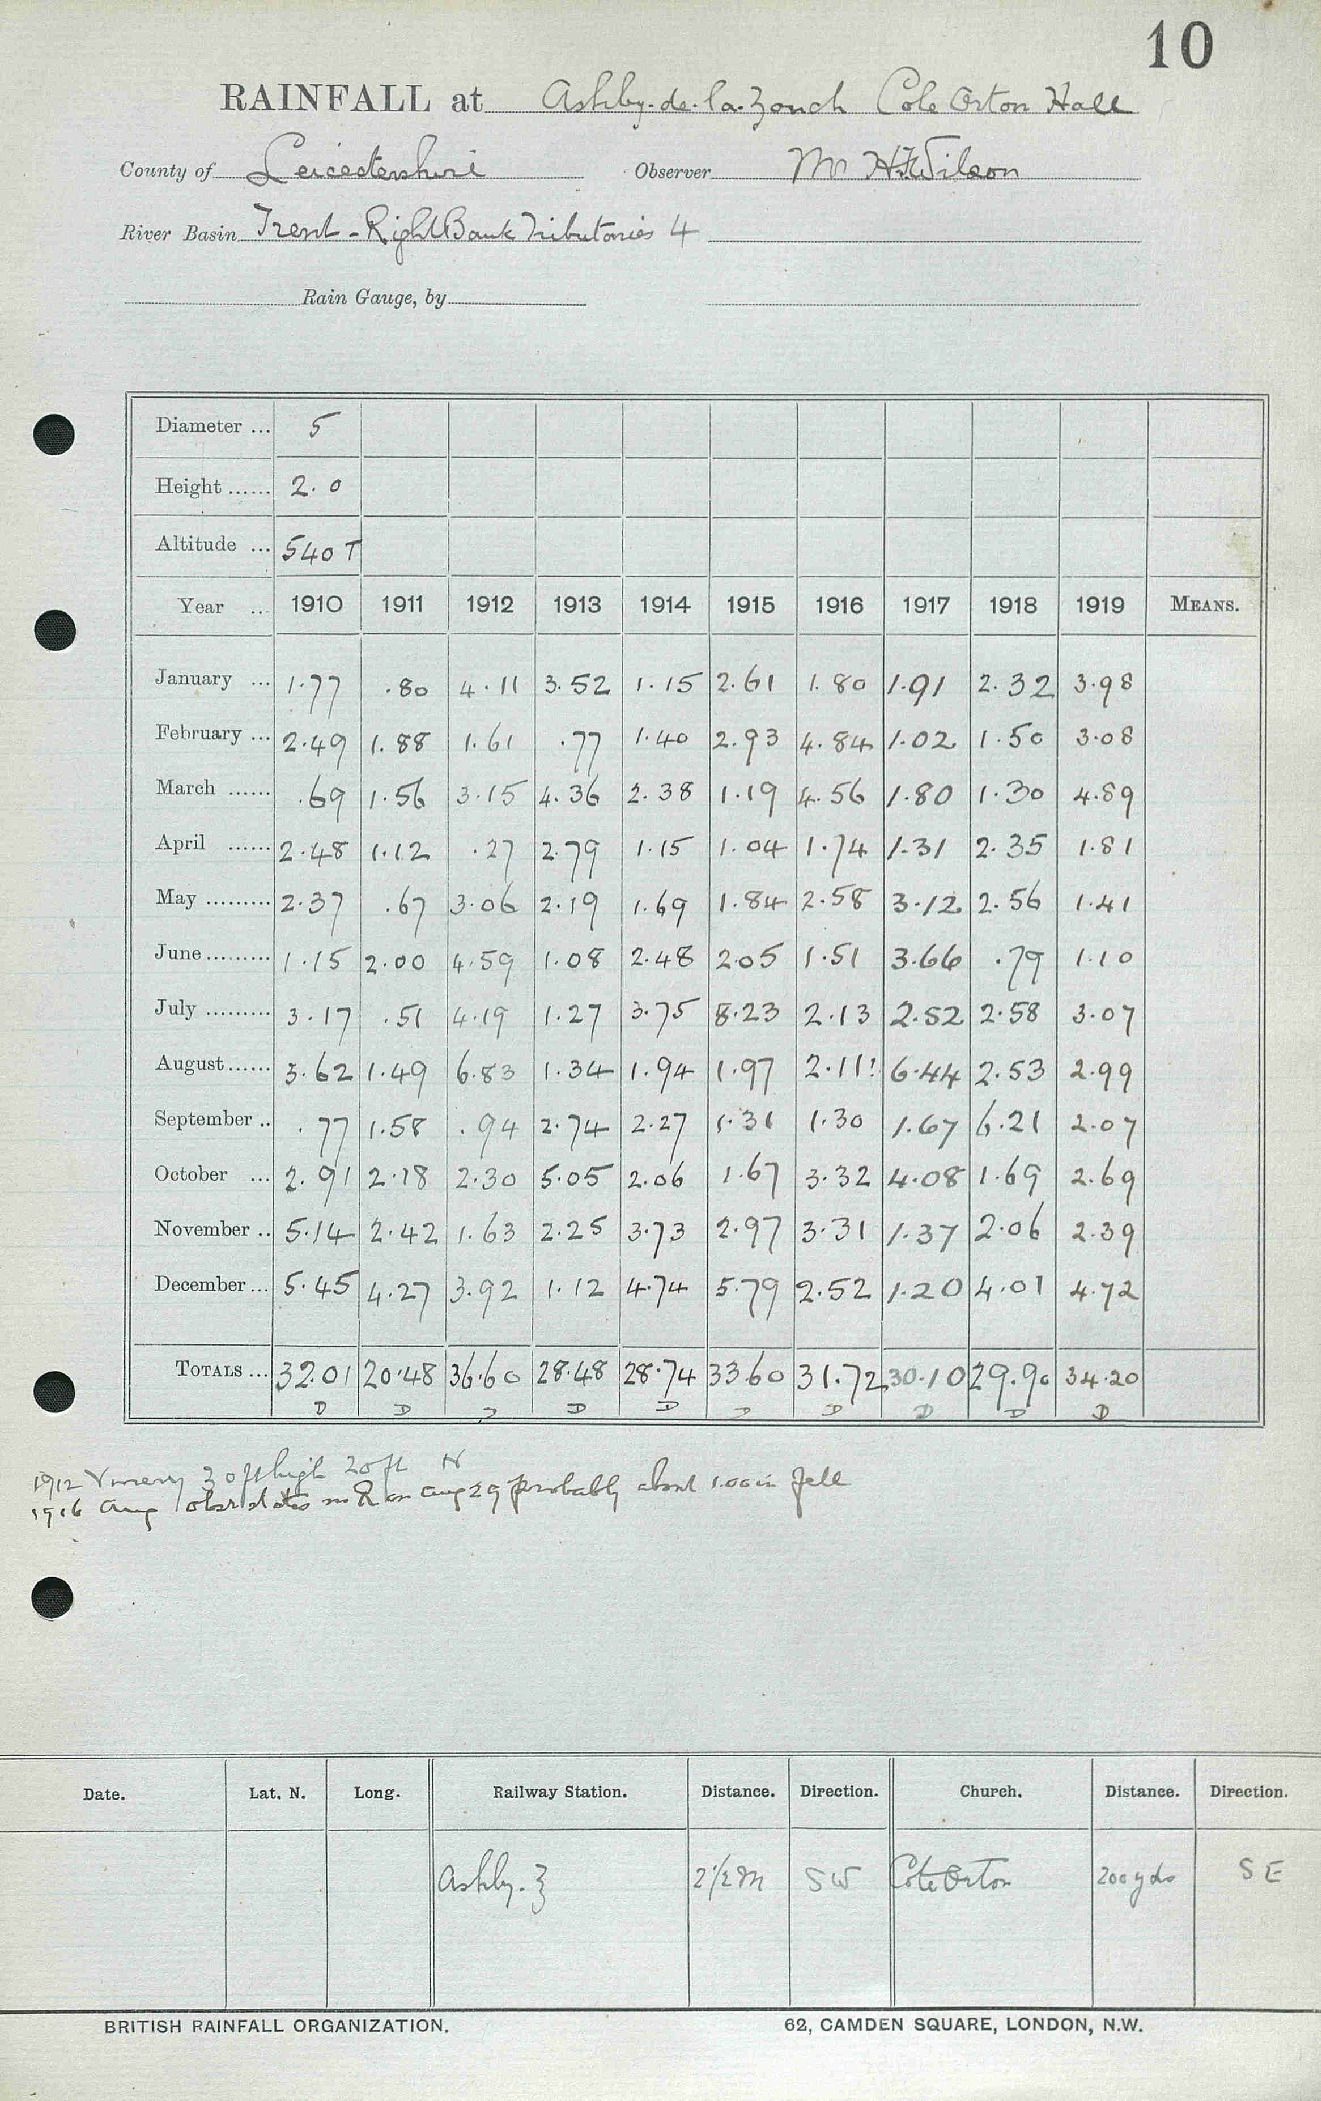 10
RAINFALL at Ashby-de-la-Zouch Cole Orton Hall
County of Leicestershire Observer Mr H.F.Wilson
River Basin Trent - Right Bank Tributaries 4
Rain Gauge, by
Diameter ... 5
Height ...... 2.0
Altitude ... 540 T
Year ... 1910 1911 1912 1913 1914 1915 1916 1917 1918 1919 MEANS.
January ... 1.77 .80 4.11 3.52 1.15 2.61 1.80 1.91 2.32 3.98
February ... 2.49 1.88 1.61 .77 1.40 2.93 4.84 1.02 1.50 3.08
March ...... .69 1.56 3.15 4.36 2.38 1.19 4.56 1.80 1.30 4.89
April ...... 2.48 1.12 .27 2.79 1.15 1.04 1.74 1.31 2.35 1.81
May ......... 2.37 .67 3.06 2.19 1.69 1.84 2.58 3.12 2.56 1.41
June ......... 1.15 2.00 4.59 1.08 2.48 2.05 1.51 3.66 .79 1.10
July ......... 3.17 .51 4.19 1.27 3.75 8.23 2.13 2.52 2.58 3.07
August ...... 3.62 1.49 6.83 1.34 1.94 1.97 2.11! 6.44 2.53 2.99
September .. .77 1.58 .94 2.74 2.27 1.31 1.30 1.67 6.21 2.07
October ... 2.91 2.18 2.30 5.05 2.06 1.67 3.32 4.08 1.69 2.69
November .. 5.14 2.42 1.63 2.25 3.73 2.97 3.31 1.37 2.06 2.39
December ... 5.45 4.27 3.92 1.12 4.74 5.79 2.52 1.20 4.01 4.72
TOTALS ... 32.01 20.48 36.60 28.48 28.74 33.60 31.72 30.10 29.90 34.20
D D D D D D D D D D
1912 Vinery 30ft high 20ft N
1916 Aug obsr states no R on Aug 29 probably about 1.00 in fell
Date. Lat. N. Long. Railway Station. Distance. Direction. Church. Distance. Direction.
Ashby. Z 2½ M SW Cole Orton 200 yds SE
BRITISH RAINFALL ORGANIZATION. 62, CAMDEN SQUARE, LONDON, N.W.